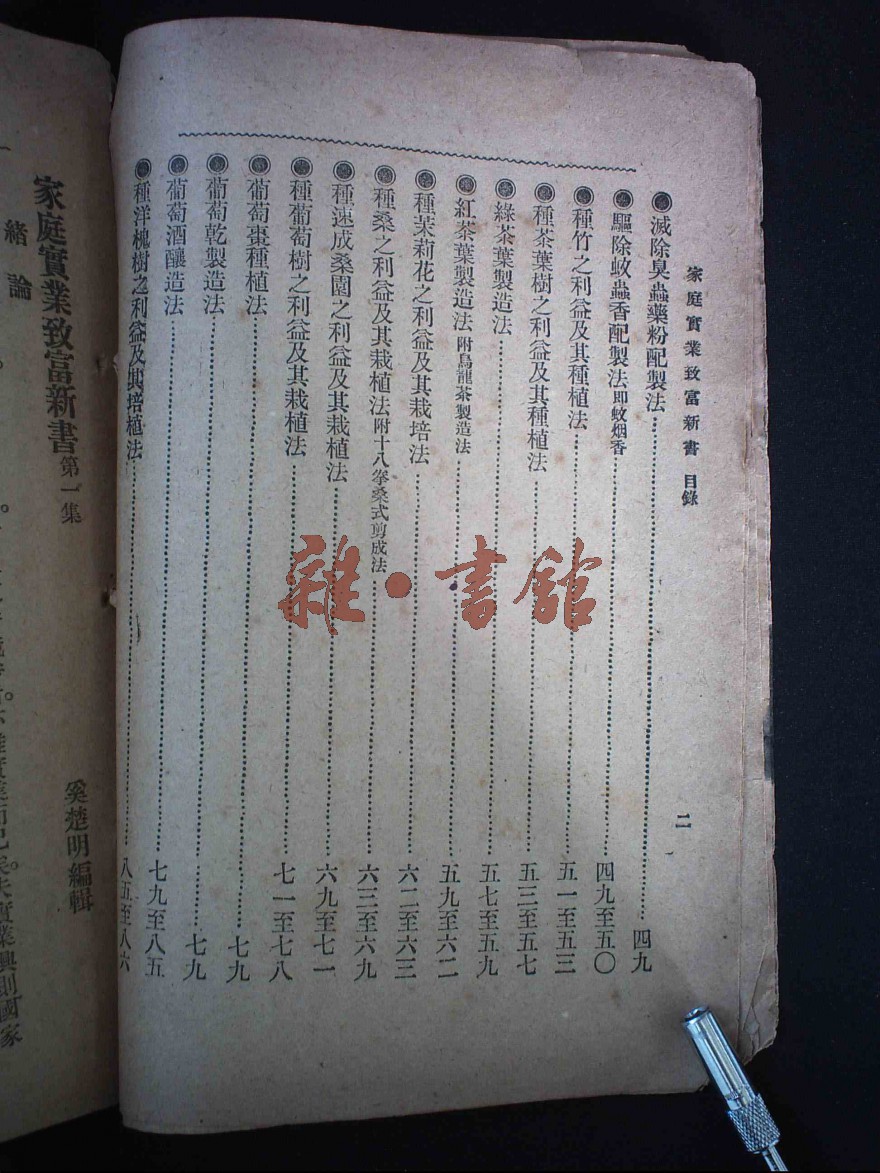 家庭實業致富新書 目錄
二
滅除臭蟲藥粉配製法 四九
驅除蚊蟲香配製法即蚊烟香 四九至五〇
種竹之利益及其種植法 五一至五三
種茶葉樹之利益及其種植法 五三至五七
綠茶葉製造法 五七至五九
紅茶葉製造法附烏龍茶製造法 五九至六二
種茉莉花之利益及其栽培法 六二至六三
種桑之利益及其栽植法附十八拳桑式剪成法 六三至六九
種速成桑園之利益及其栽植法 六九至七一
種葡萄樹之利益及其栽植法 七一至七八
葡萄棗種植法 七九
葡萄乾製造法 七九
葡萄酒釀造法 七九至八五
種洋槐樹之利益及其培植法 八五至八六
雜·書館
家庭實業致富新書第一集
奚楚明編輯
緒論
實業興則國家